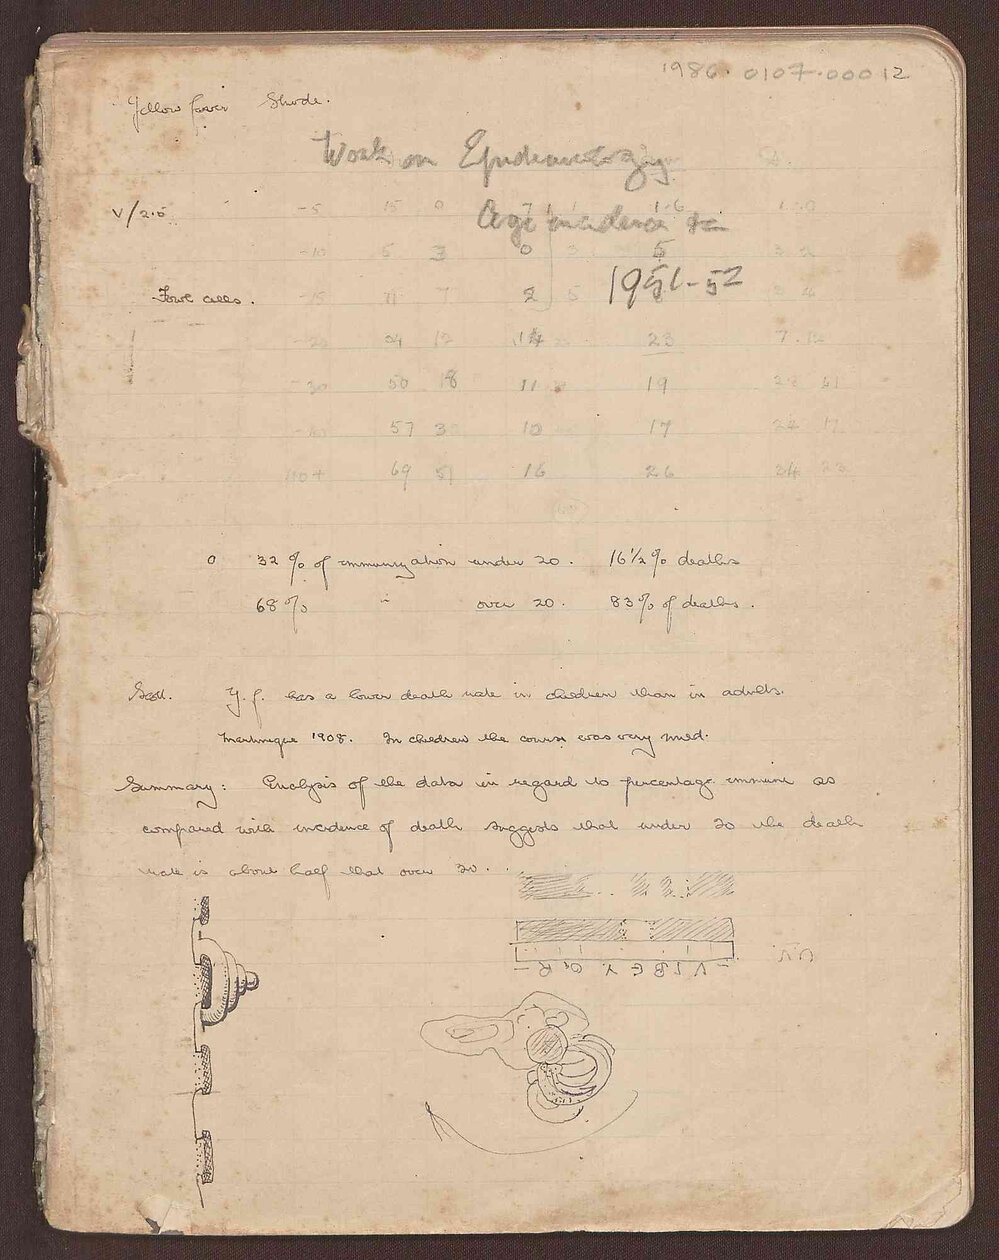 1986.0107.00012
Yellow fever
Work on Epidemiology
Age incidence &c
1951-52
V/2.5
Fowl cells.
-5 15
-10 6 3 0 3 5
-15 11 7 2 5 8
24 12 14 23 7.
-30 50 18 11 19
57 3 10 17 24 17
40+ 69 51 16 26 34 23
0 32% of immunization under 20. 16½% deaths
68% " over 20. 83% of deaths.
Y.f. has a lower death rate in children than in adults.
Martinique 1908. In children the course was very mild.
Summary: Analysis of the data in regard to percentage immune as
compared with incidence of death suggests that under 20 the death
rate is about half that over 20.
V I B G Y O R